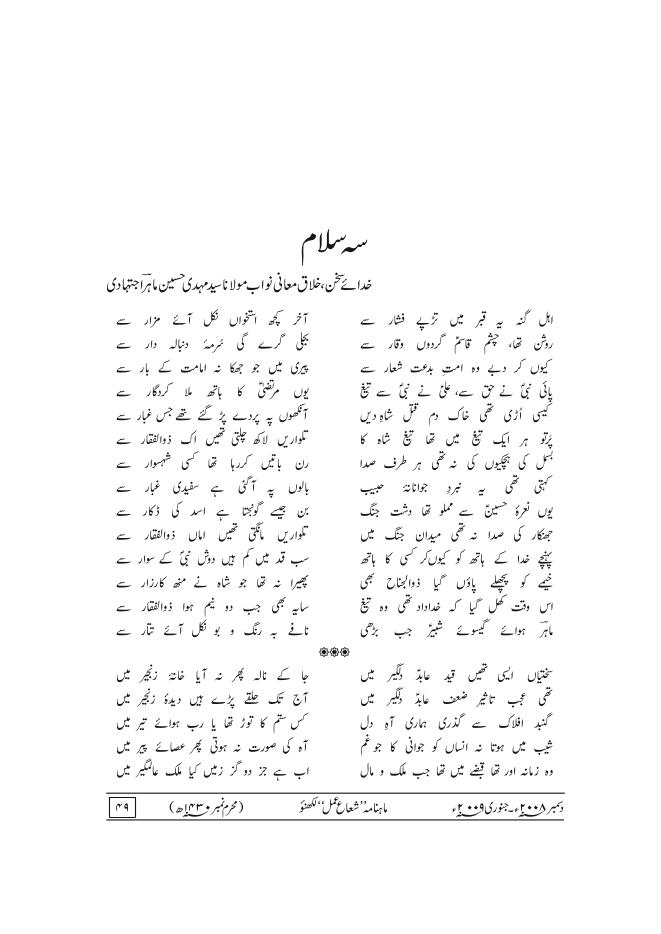 سہ سلام
خدائے سخن، خلاق معانی نواب مولانا سید مہدی حسین ماہرؔ اجتہادی
اہل گنہ یہ قبر میں تڑپے فشار سے آخر کچھ استخواں نکل آئے مزار سے
روشن تھا، چشم قاسمؑ گردوں وقار سے بجلی گرے گی سُرمۂ دنبالہ دار سے
کیوں کر دبے وہ امتِ بدعت شعار سے پیری میں جو جھکا نہ امامت کے بار سے
پائی نبیؐ نے حق سے، علیؑ نے نبیؐ سے تیغ یوں مرتضیٰؑ کا ہاتھ ملا کردگار سے
کیسی اُڑی تھی خاک دم قتل شاہِ دیں آنکھوں پہ پردے پڑ گئے تھے جس غبار سے
پَرتو ہر ایک تیغ میں تھا تیغ شاہ کا تلواریں لاکھ چلتی تھیں اک ذوالفقار سے
بسمل کی ہچکیوں کی نہ تھی ہر طرف صدا رن باتیں کررہا تھا کسی شہسوار سے
کہتی تھی یہ نبردِ جوانانۂ حبیب بالوں پہ آگئی ہے سفیدی غبار سے
یوں نعرۂ حسینؑ سے مملو تھا دشت جنگ بن جیسے گونجتا ہے اسد کی ڈکار سے
جھنکار کی صدا نہ تھی میدان جنگ میں تلواریں مانگتی تھیں اماں ذوالفقار سے
پہنچے خدا کے ہاتھ کو کیوں کر کسی کا ہاتھ سب قد میں کم ہیں دوش نبیؐ کے سوار سے
خیمے کو پچھلے پاؤں گیا ذوالجناح بھی پھیرا نہ تھا جو شاہ نے منھ کارزار سے
اس وقت کھل گیا کہ خداداد تھی وہ تیغ سایہ بھی جب دو نیم ہوا ذوالفقار سے
ماہرؔ ہوائے گیسوئے شبیرؑ جب بڑھی نافے بہ رنگ و بو نکل آئے تتار سے
سختیاں ایسی تھیں قید عابدِؑ دلگیر میں جا کے نالہ پھر نہ آیا خانۂ زنجیر میں
تھی عجب تاثیر ضعف عابدِؑ دلگیر میں آج تک حلقے پڑے ہیں دیدۂ زنجیر میں
گنبد افلاک سے گذری ہماری آہِ دل کس ستم کا توڑ تھا یا رب ہوائے تیر میں
شیب میں ہوتا نہ انساں کو جوانی کا جو غم آہ کی صورت نہ ہوتی پھر عصائے پیر میں
وہ زمانہ اور تھا قبضے میں تھا جب ملک و مال اب ہے جز دو گز زمیں کیا ملک عالمگیر میں
دسمبر ۲۰۰۸ء۔جنوری ۲۰۰۹ء ماہنامہ ’’شعاع عمل‘‘ لکھنؤ (محرم نمبر ۱۴۳۰ھ) ۴۹